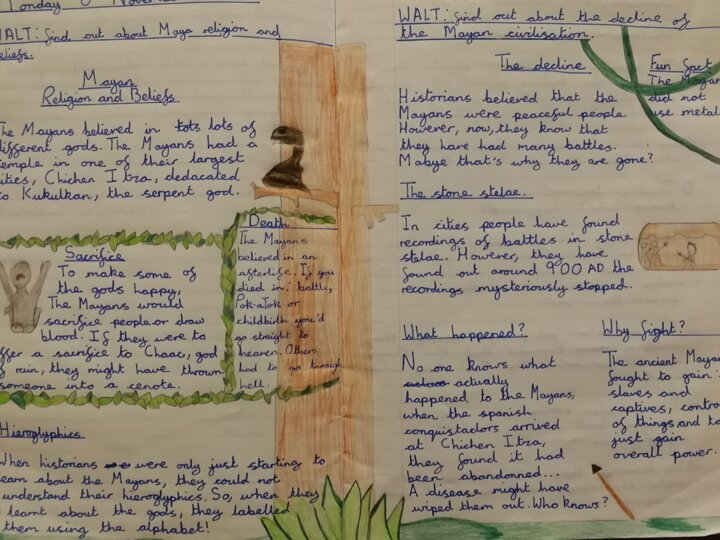 Monday
WALT: find out about Maya religion and
beliefs.
Mayan
Religion and Beliefs
The Mayans believed in lots of
different gods. The Mayans had a
temple in one of their largest
cities, Chichen Itza, dedacated
to Kukulkan, the serpent god.
Sacrifice
To make some of
the gods happy,
The Mayans would
sacrifice people or draw
blood. If they were to
offer a sacrifice to Chaac, god
of rain, they might have thrown
someone into a cenote.
Death
The Mayans
believed in an
afterlife. If you
died in: battle,
Pok-a-Tok or
childbirth you'd
go straight to
heaven. Others
had to go through
hell.
Hieroglyphics
When historians were only just starting to
learn about the Mayans, they could not
understand their hieroglyphics. So, when they
learnt about the gods, they labelled
them using the alphabet!
WALT: find out about the decline of
the Mayan civilisation.
The decline
Historians believed that the
Mayans were peaceful people.
However, now, they know that
they have had many battles.
Mabye that's why they are gone?
Fun fact
The Mayans
did not
use metal
The stone stelae.
In cities people have found
recordings of battles in stone
stelae. However, they have
found out around 900 AD the
recordings mysteriously stopped.
What happened?
No one knows what
actually
happened to the Mayans,
when the spanish
conquistadors arrived
at Chichen Itza,
they found it had
been abandonned...
A disease might have
wiped them out. Who knows?
Why fight?
The ancient Mayans
fought to gain:
slaves and
captives, control
of things and to
just gain
overall power.